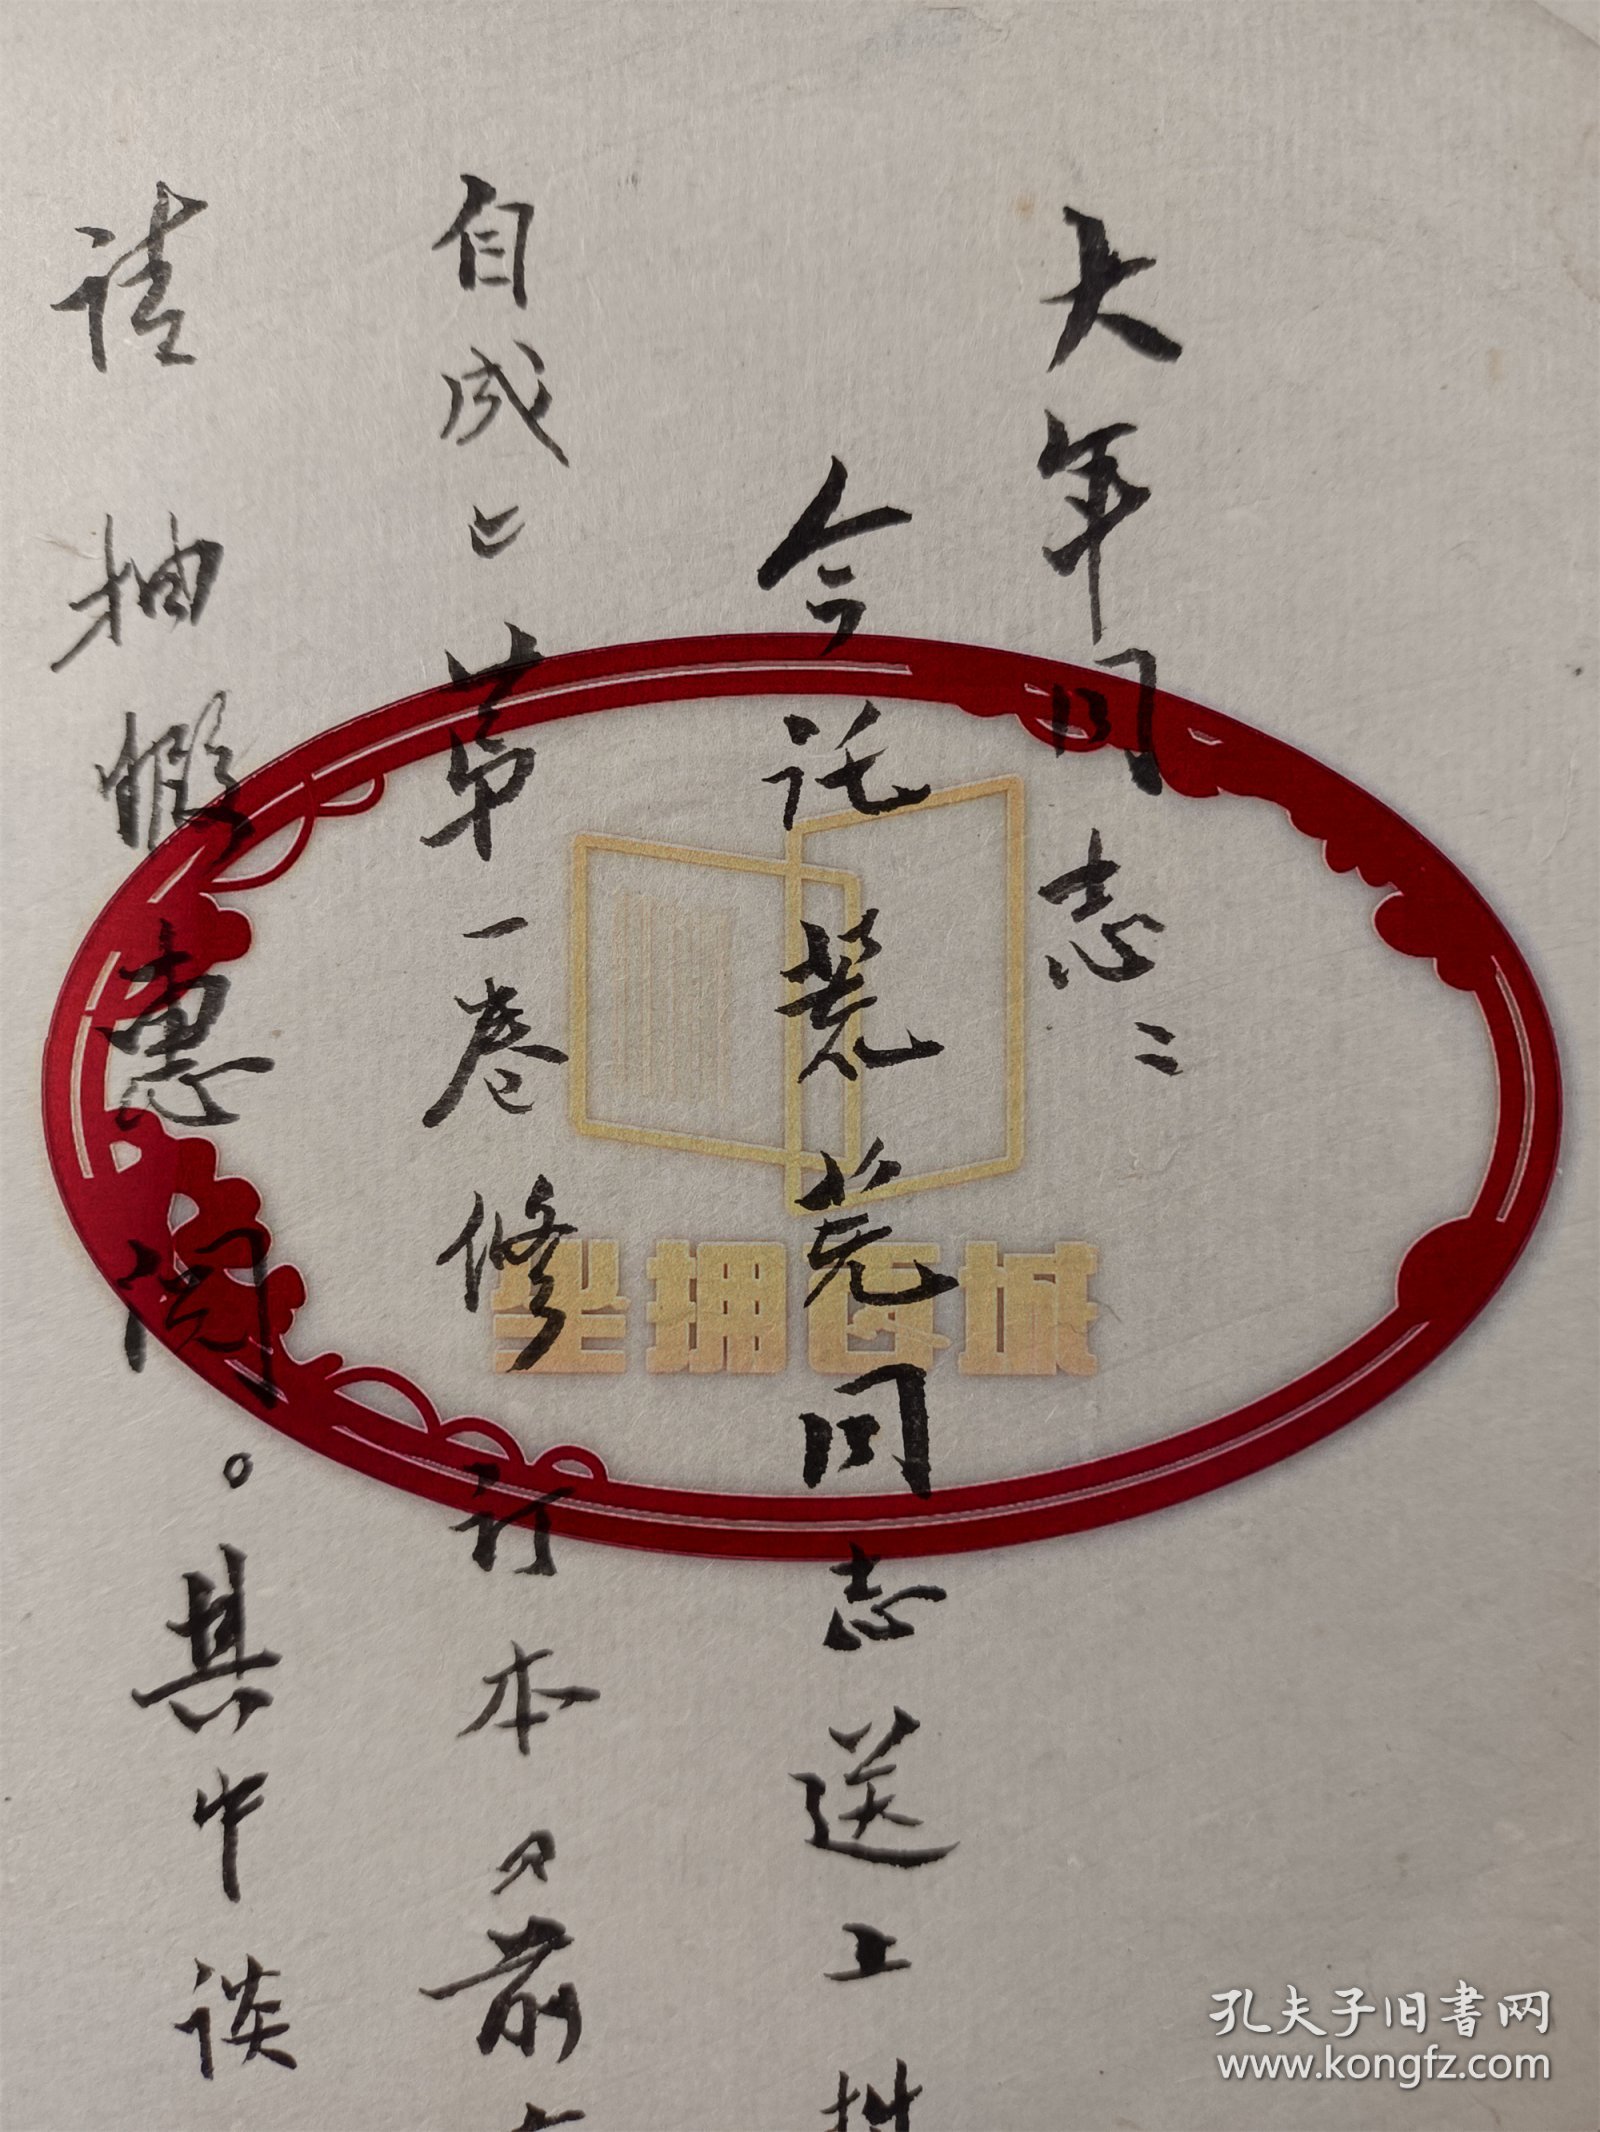 大年同志：
今托荒芜同志送上拙
自成》第一卷修订本的前言
请抽暇惠阅。其中谈
坐拥百城
孔夫子旧书网
www.kongfz.com